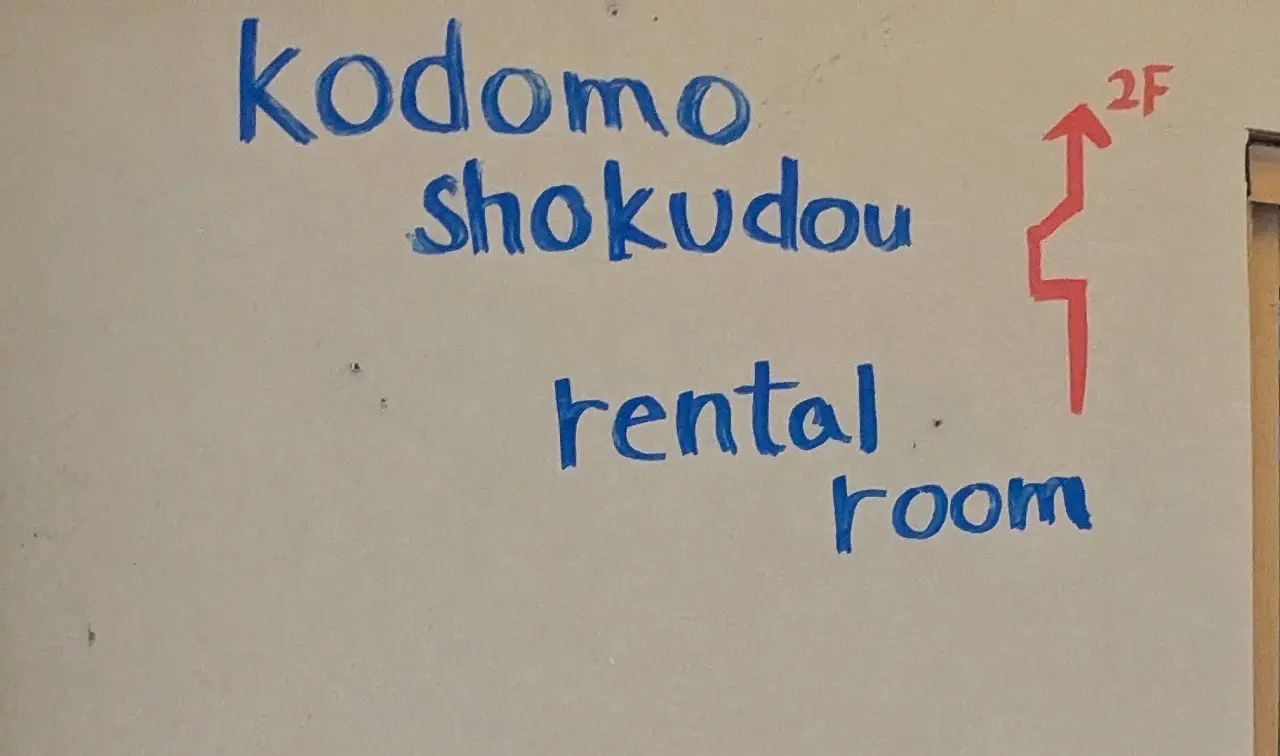 kodomo
shokudou
2F
rental
room